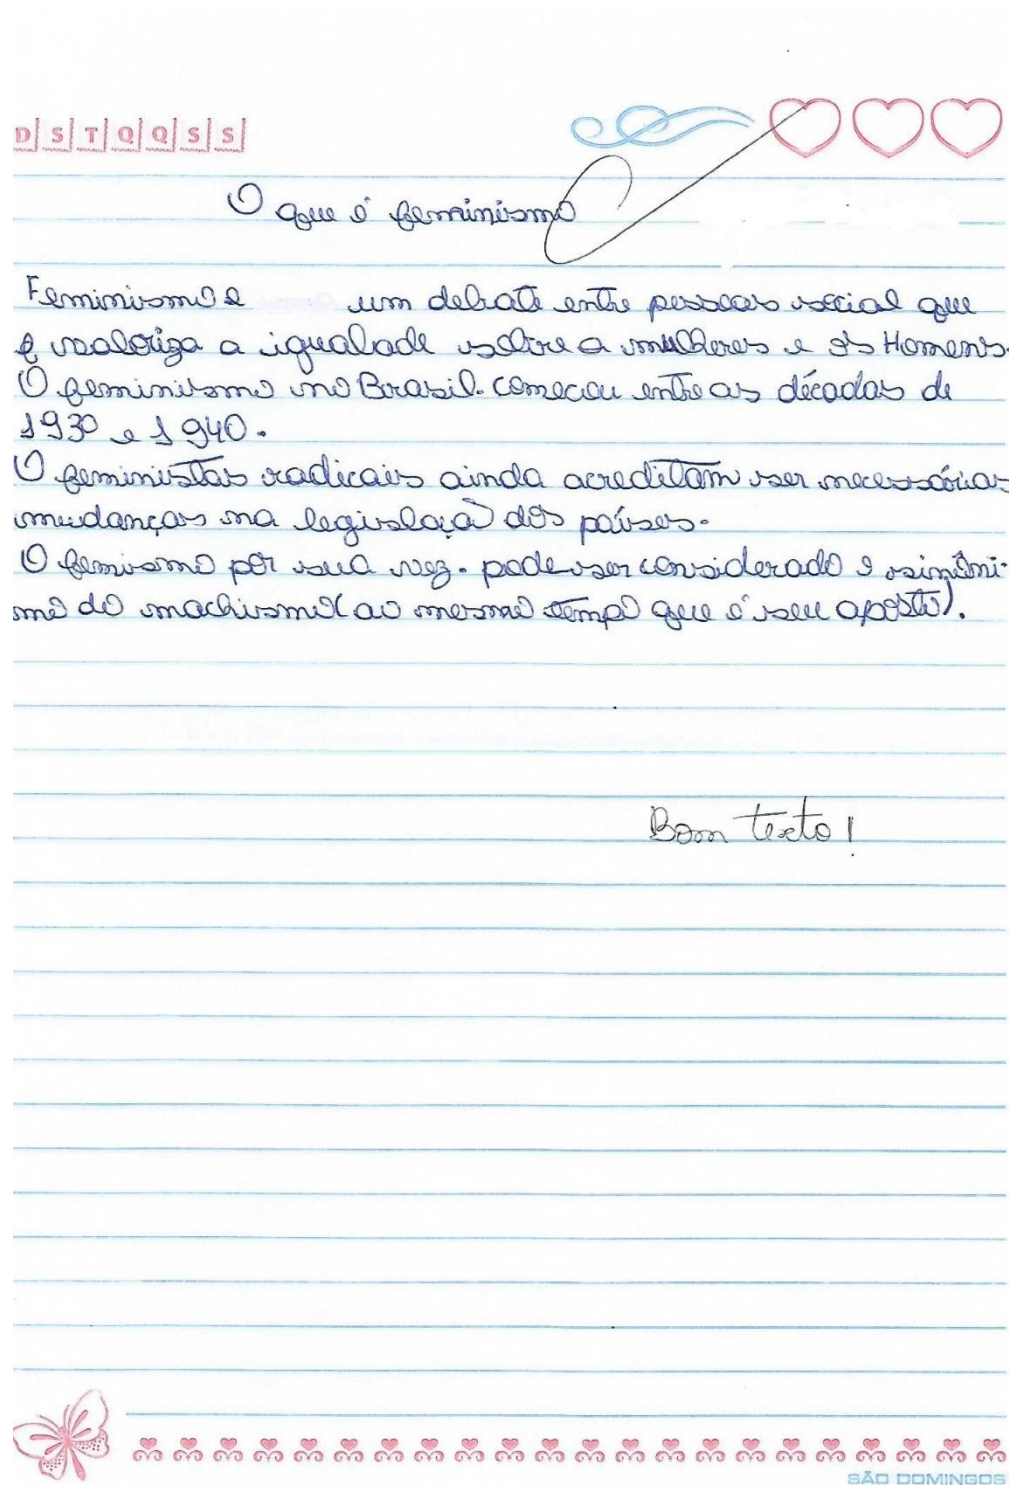 D S T Q Q S S
O que é feminismo
Feminismo e um debate entre pessoas social que
e valoriza a igualade sobre a mulheres e os Homens.
O feminismo no Brasil. começou entre as décadas de
1930 e 1940.
O feministas radicais ainda acreditam ser necessárias
mudanças na legislaçaõ dos países.
O femismo por sua vez. pode ser considerado o sinôni-
mo do machismo (ao mesmo tempo que é seu aposto).
Bom texto!
SÃO DOMINGOS